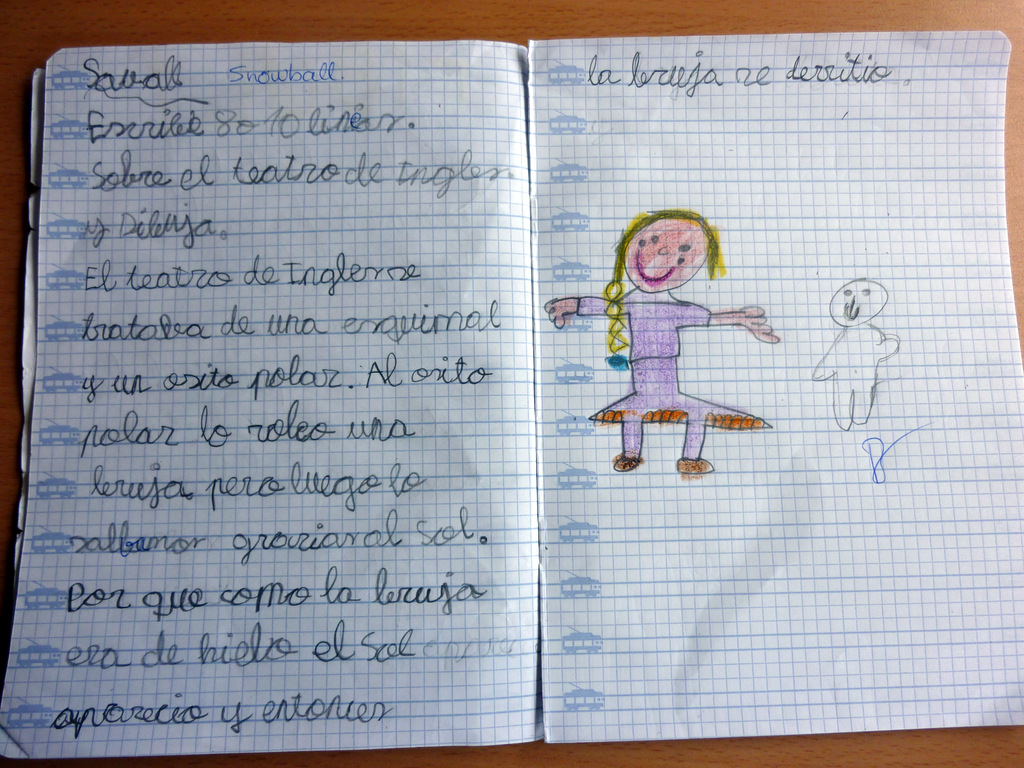 Saval Snowball.
Escribe 8 o 10 lineas.
Sobre el teatro de Ingles.
y Dibuja.
El teatro de Ingles se
trataba de una esquimal
y un osito polar. Al osito
polar lo robo una
bruja pero luego lo
salbamos graziasal Sol.
Por que como la bruja
era de hielo el Sol
aparecio y entonces
la bruja se derritio.